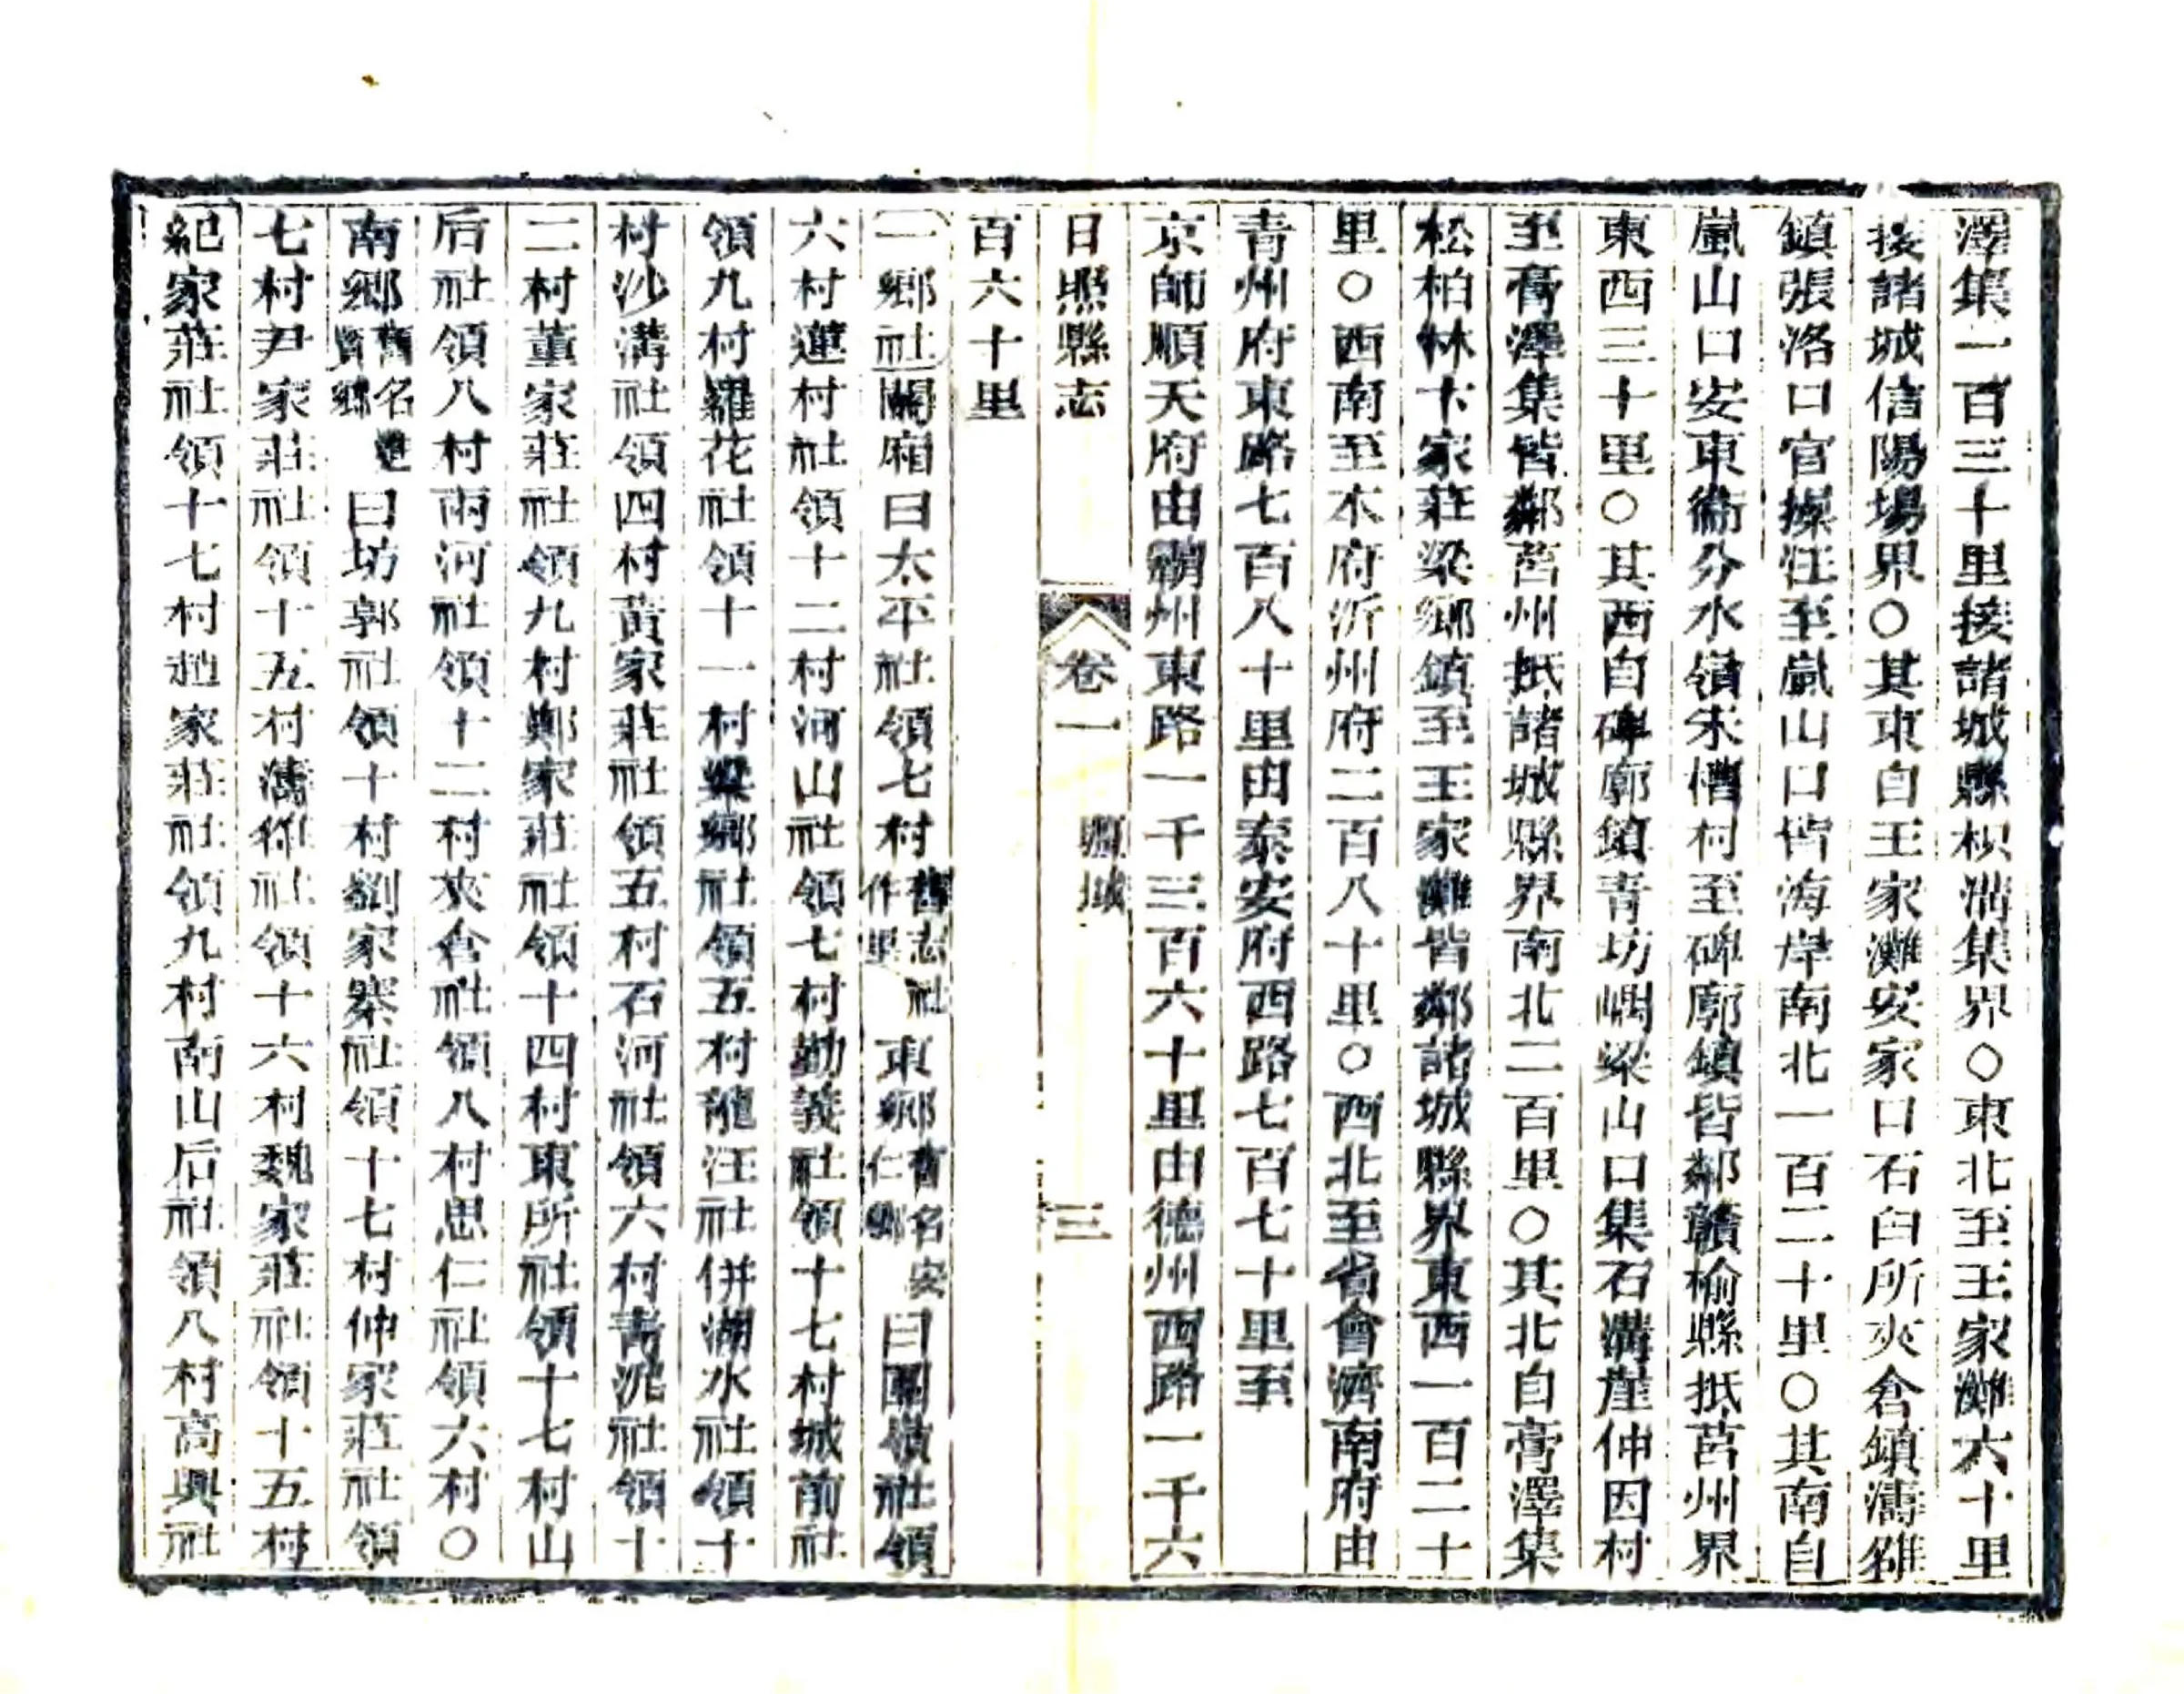 澤集一百三十里接諸城縣枳溝集界○東北至王家灘六十里
接諸城信陽場界○其東自王家灘安家口石臼所夾倉鎮濤雒
鎮張洛口官操汪至嵐山口皆海岸南北一百二十里○其南自
嵐山口安東衞分水嶺朱槽村至碑廓鎮皆鄰贛榆縣抵莒州界
東西三十里○其西自碑廓鎮青坊嵎梁山口集石溝崖仲因村
至膏澤集皆鄰莒州抵諸城縣界南北二百里○其北自膏澤集
松柏林卞家莊梁鄉鎮至王家灘皆鄰諸城縣界東西一百二十
里○西南至本府沂州府二百八十里○西北至省會濟南府由
青州府東路七百八十里由泰安府西路七百七十里至
京師順天府由霸州東路一千三百六十里由德州西路一千六
日照縣志 卷一 疆域 三
百六十里
一鄉社關廂曰太平社領七村舊志社作里東鄉舊名安仁鄉曰圈嶺社領
六村蓮村社領十二村河山社領七村勤義社領十七村城前社
領九村羅花社領十一村梁鄉社領五村龍汪社併湖水社領十
村沙溝社領四村黃家莊社領五村石河社領六村青泥社領十
二村董家莊社領九村鄭家莊社領十四村東所社領十七村山
后社領八村兩河社領十二村夾倉社領八村思仁社領六村○
南鄉舊名進賢鄉曰坊郭社領十村劉家寨社領十七村仲家莊社領
七村尹家莊社領十五村濤雒社領十六村魏家莊社領十五村
紀家莊社領十七村趙家莊社領九村南山后社領八村高興社